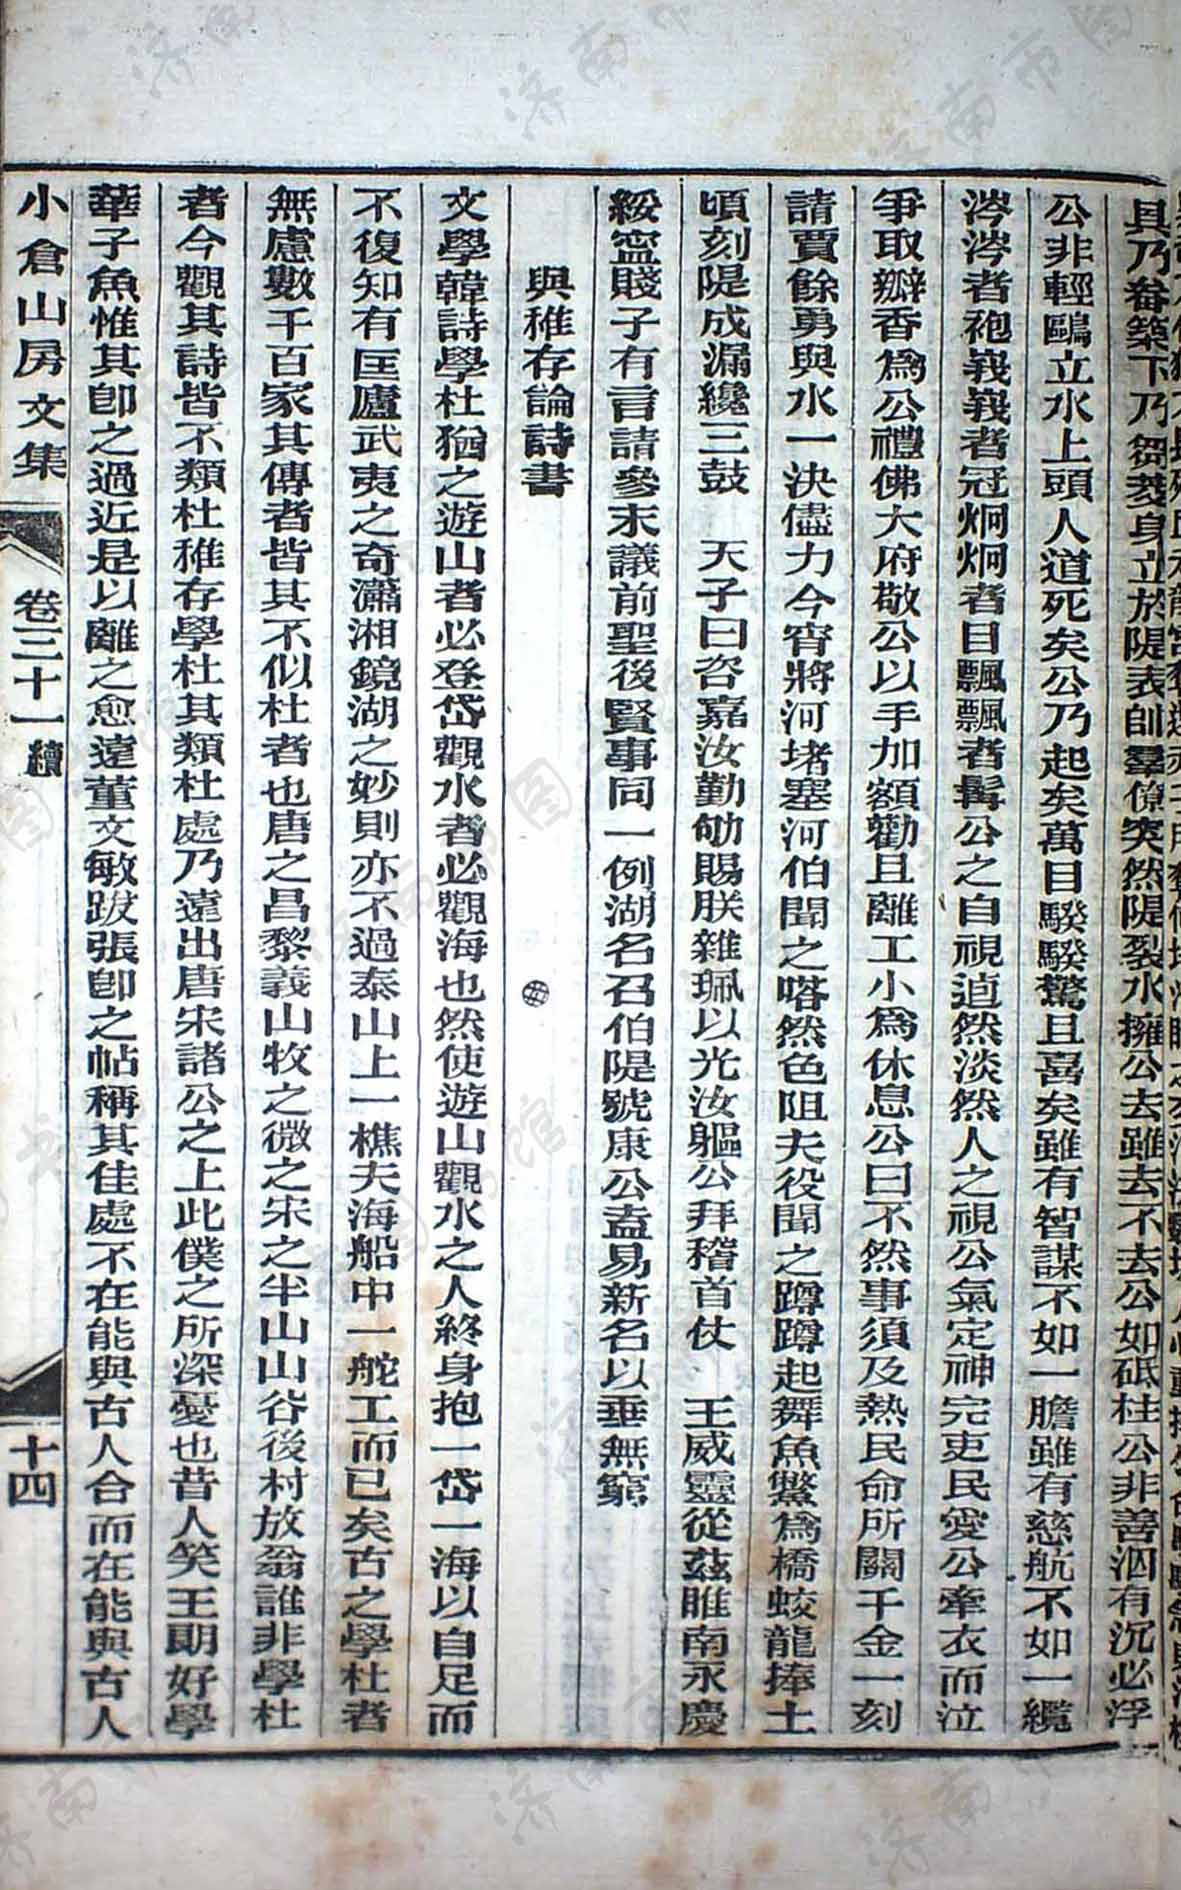 具乃畚築下乃芻茭身立於隄表帥羣僚突然隄裂水擁公去雖去不去公如砥柱公非善泅有沉必浮
公非輕鷗立水上頭人道死矣公乃起矣萬目睽睽驚且喜矣雖有智謀不如一膽雖有慈航不如一纜
涔涔者袍峩峩者冠炯炯者目飄飄者髯公之自視逌然淡然人之視公氣定神完吏民愛公牽衣而泣
爭取瓣香爲公禮佛大府敬公以手加額勸且離工小爲休息公曰不然事須及熱民命所關千金一刻
請賈餘勇與水一決儘力今宵將河堵塞河伯聞之喀然色阻夫役聞之蹲蹲起舞魚鼈爲橋蛟龍捧土
頃刻隄成漏纔三鼓　天子曰咨嘉汝勤劬賜朕雜珮以光汝軀公拜稽首仗　王威靈從茲睢南永慶
綏寍賤子有言請參末議前聖後賢事同一例湖名召伯隄號康公盍易新名以垂無窮
與稚存論詩書
文學韓詩學杜猶之遊山者必登岱觀水者必觀海也然使遊山觀水之人終身抱一岱一海以自足而
不復知有匡廬武夷之奇瀟湘鏡湖之妙則亦不過泰山上一樵夫海船中一舵工而已矣古之學杜者
無慮數千百家其傳者皆其不似杜者也唐之昌黎義山牧之微之宋之半山山谷後村放翁誰非學杜
者今觀其詩皆不類杜稚存學杜其類杜處乃遠出唐宋諸公之上此僕之所深憂也昔人笑王朗好學
華子魚惟其卽之過近是以離之愈遠董文敏跋張卽之帖稱其佳處不在能與古人合而在能與古人
小倉山房文集
卷三十一續
十四